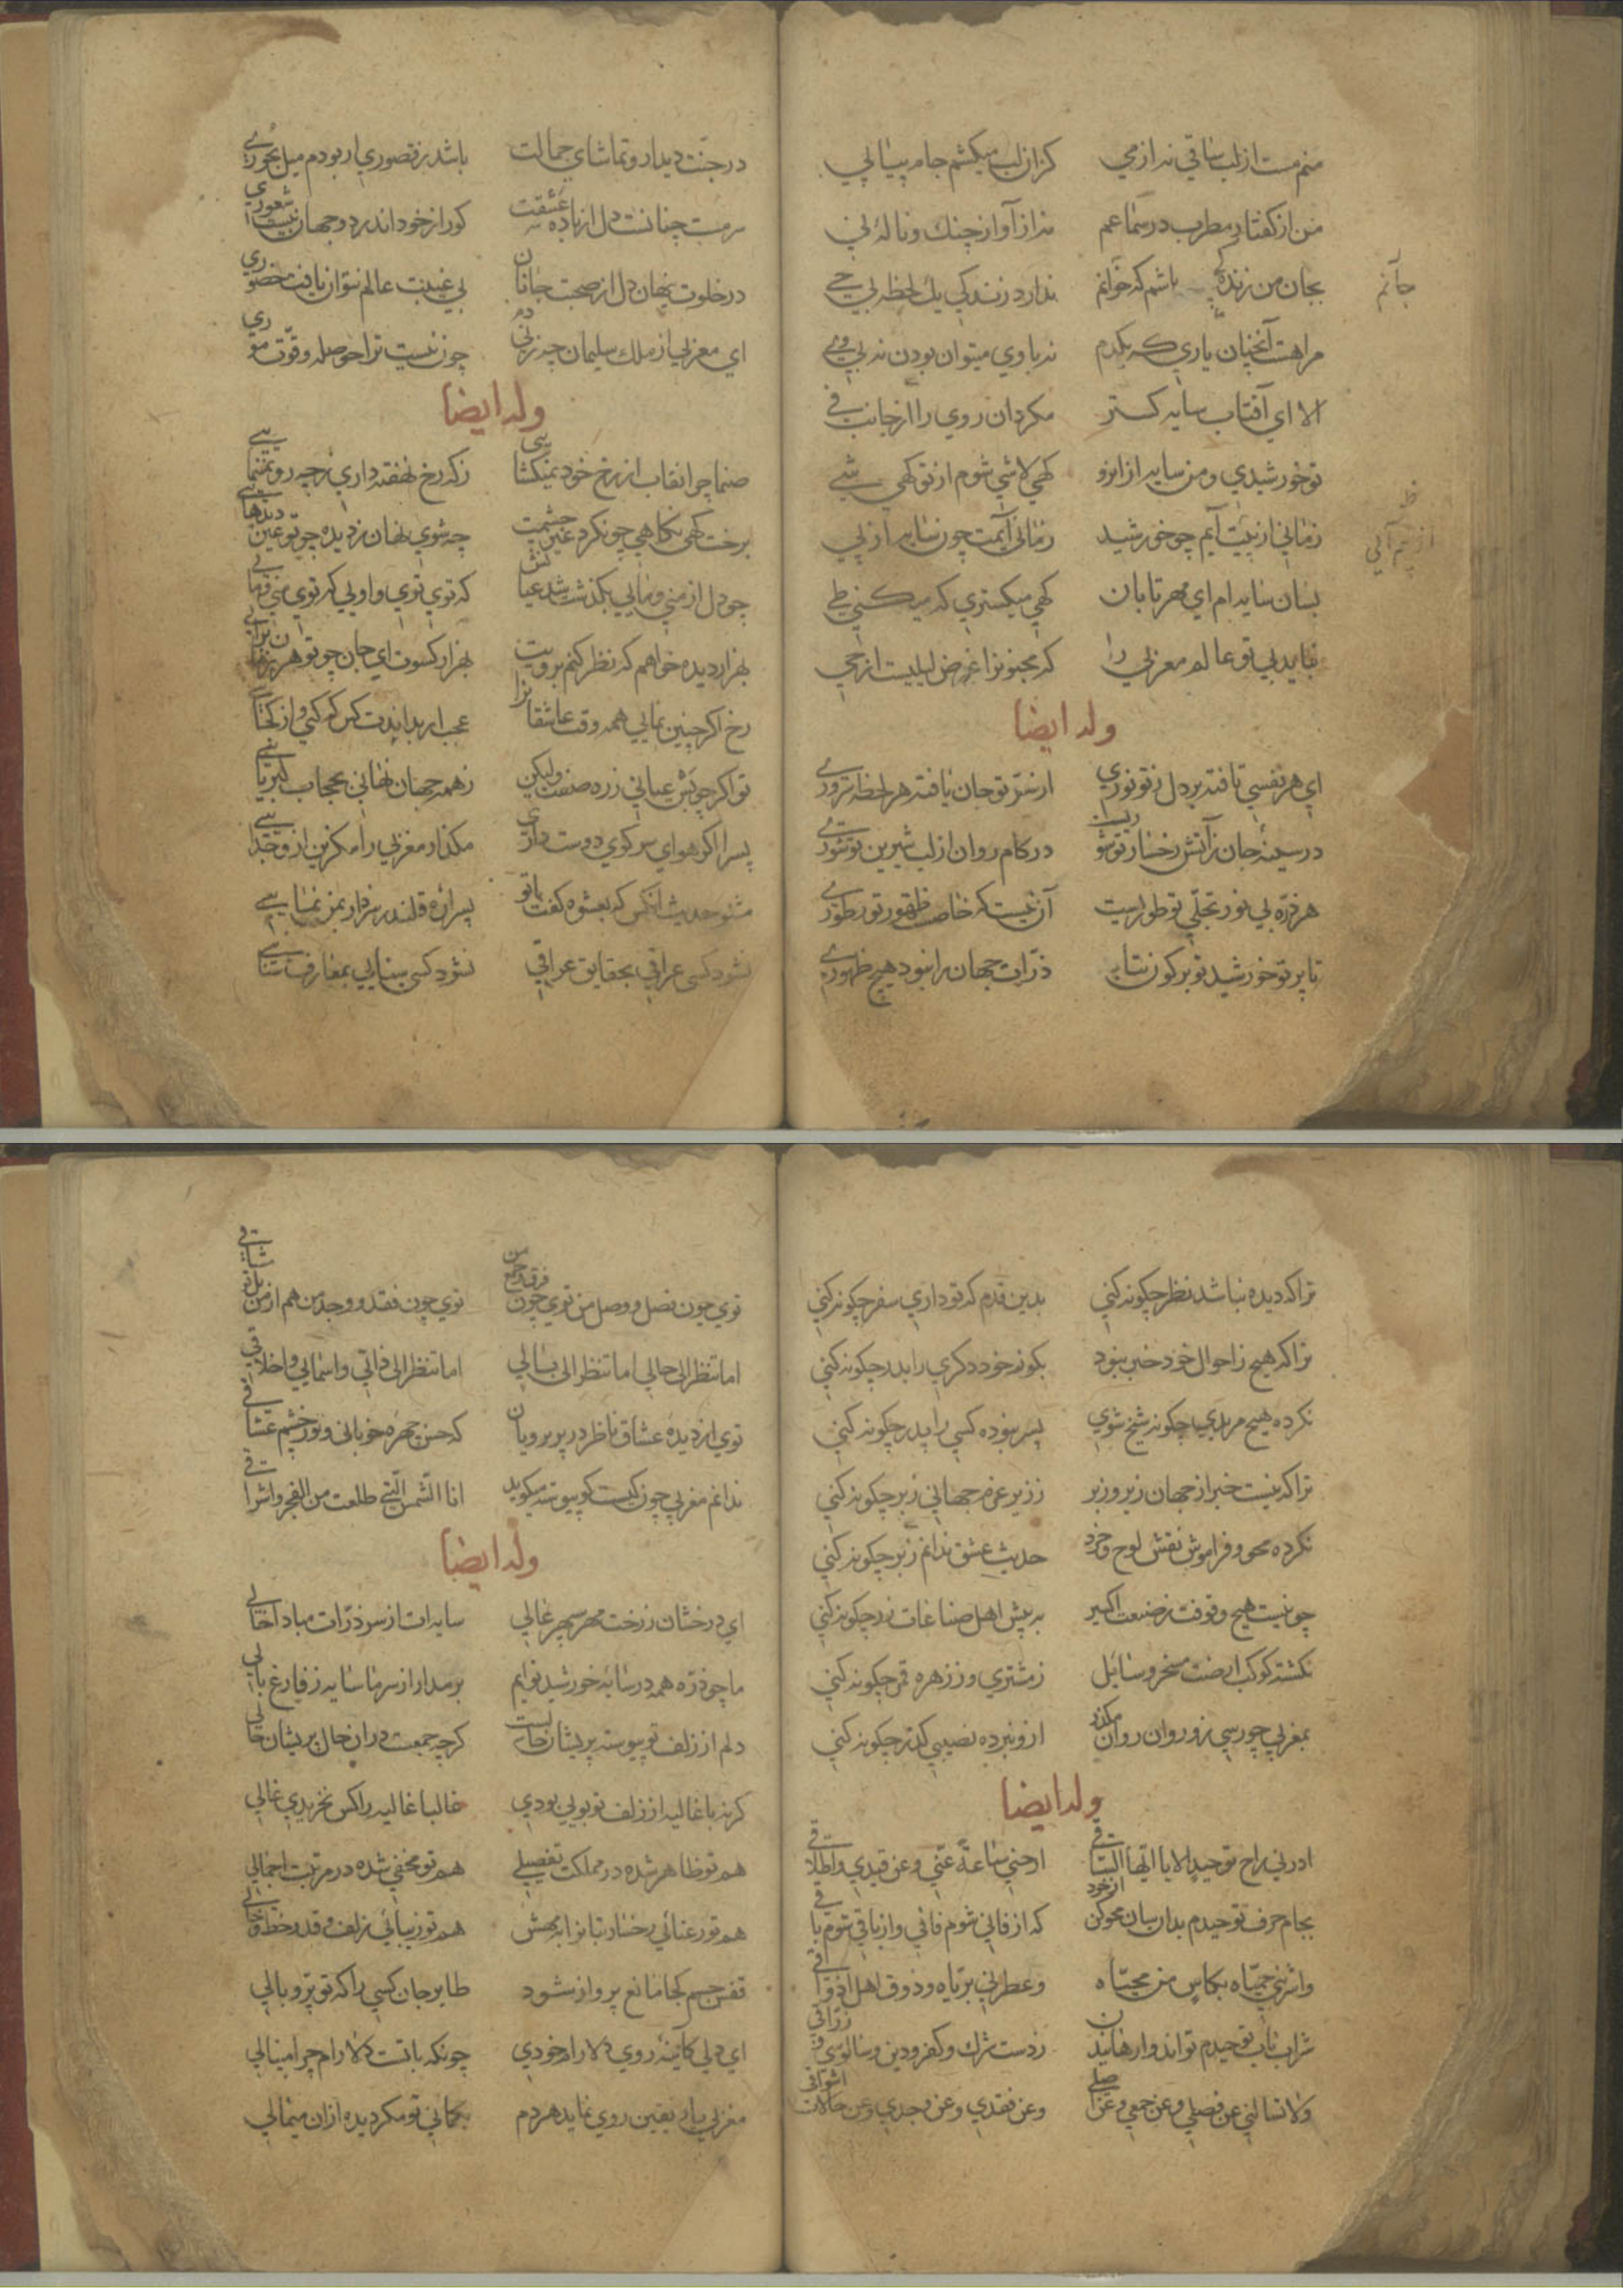 منم مست از لب ساقی نه از می کزان لب میکشم جام پیاپی
من از گفتار مطرب در سماعم نه از آواز چنك و ناله نی
بجان من زنده باشم که خوانم ندارد زندکی یك لحظه بی حی
جانم
مرا هست آنچنان یاری که یکدم نه باوی میتوان بودن نه بی وی
الا ای آفتاب سایه کستر مکردان روی را از جانب فی
تو خورشیدی و من سایه از انرو کهی لاشی شوم از تو کهی شی
زمانی از پیت آیم چو خورشید زمانی آیمت چون سایه از پی
بسان سایه ام ای مهر تابان کهی میکستری که میکنی طی
نباید بی تو عالم مغربی را که مجنونرا غرض لیلیست از حی
وله ایضا
ای هر نفسی تافته بر دل ز تو نوری از سر تو جان یافته هر لحظه سروری
در سینه جان ز آتش رخسار تو سوری در کام روان از لب شیرین تو شوری
هر ذره بی نور تجلی تو طوریست آن نیست که خاص ظهور تو طوری
تا پرتو خورشید تو بر کون نتابد ذرات جهان را نبود هیچ ظهوری
در جنت دیدار و تماشای جمالت باشد ز قصوری ار بودم میل بحوری
سرمست چنانست دل از باده عشقت کورا ز خود اندر دو جهان نیست شعوری
در خلوت پنهان دل از صحبت جانان بی غیبت عالم نتوان یافت حضوری
ای مغربی از ملك سلیمان چه زنی دم چون نیست ترا حوصله و قوت موری
وله ایضا
صنما چرا نقاب از رخ خود نمیکشایی ز که رخ نهفته داری ز چه رو نمینمایی
برخت کهی نکاهی چو نکرد غیر چشمت چه شوی نهان ز دیده چو تو عین دیدهایی
چو دل از منی و مایی بکذشت شد عیانش که توی توی و اویی که توی منی و مایی
بهزار دیده خواهم که نظر کنم برویت بهزار کسوت ای جان چو تو هر زمان برآیی
رخ اکر چنین نمایی همه وقت عاشقانرا عجب ار بداندت کس که کی و از کجایی
تو اکر چه بس عیانی ز ره صفت ولیکن ز همه جهان نهانی بحجاب کبریایی
پسرا اکر هوای سر کوی دوست داری مکذار مغربی را مکزین ازو جدایی
مشنو حدیث آنکس که بعشوه کفت با تو پسرا ره قلندر سزد ار بمن نمایی
نشود کسی عراقی بحقایق عراقی نشود کسی سنایی بمعارف سنایی
ترا که دیده نباشد نظر چکونه کنی بدین قدم که تو داری سفر چکونه کنی
ترا که هیچ ز احوال خود خبر نبود بکو ز خود دکری را بدر چکونه کنی
نکرده هیچ مریدی چکونه شیخ شوی پسر نبوده کسی را پدر چکونه کنی
ترا که نیست خبر از جهان زیر و زبر ز زیر عزم جهانی زبر چکونه کنی
نکرده محو و فراموش نقش لوح خرد حدیث عشق ندانم ز بر چکونه کنی
چو نیست هیچ وقوفت ز صنعت اکسیر به پیش اهل صناعات زر چکونه کنی
نکشته کوکب ارضت مسخر و سایل ز مشتری و ز زهره قمر چکونه کنی
بمغربی چو رسی زو روان روان مکذر ازو نبرده نصیبی کذر چکونه کنی
وله ایضا
ادرلی راح توحید الا یا ایها الساقی ارحنی ساعة عنی و عن قیدی و اطلاقی
بجام حرف توحیدم بدارسان محو کن از خود که از فانی شوم فانی و از باقی شوم باقی
شراب ناب توحیدم تواند وارهانیدن ز دست شرك و کفر و دین و سالوسی و زراقی
ولا تسالنی عن فصلی و عن جمعی و عن اصلی و عن فقدی و عن وجدی و عن حالات اشواقی
توی چون فصل و وصل من توی چون فرق و جمع من توی چون فقد و وجد من هم از من
اما تنظر الی حالی اما تنظر الی بالی اما تنظر الی ذاتی و اسمایی و اخلاقی
توی از دیده عشاق ناظر در پریرویان که حسن چهره خوبانی و نور چشم عشاقی
ندانم مغربی چون کیست کو پیوسته میکوید انا الشمس التی طلعت من الفجر و اشراقی
وله ایضا
ای درخشان ز رخت مهر سپهر عالی سایه ات از سر ذرات مبادا خالی
ما چو ذره همه در سایه خورشید توایم بر مدار از سر ما سایه ز فارغ بالی
دلم از زلف تو پیوسته پریشان حالیست کرچه جمعست دران حال پریشان حالی
کرنه با غالیه از زلف تو بویی بودی غالبا غالیه را کس نخریدی غالی
هم تو ظاهر شده در مملکت تفصیلی هم تو مخفی شده در مرتبت اجمالی
قفس جسم کجا مانع پرواز شود طایر جان کسی را که تو پر و بالی
ای دلی کآینه روی دلارام خودی چونکه باتست دلارام چرا مینالی
مغربی یار یقین روی نماید هردم بکمانی تو مکر دیده ازان میمالی